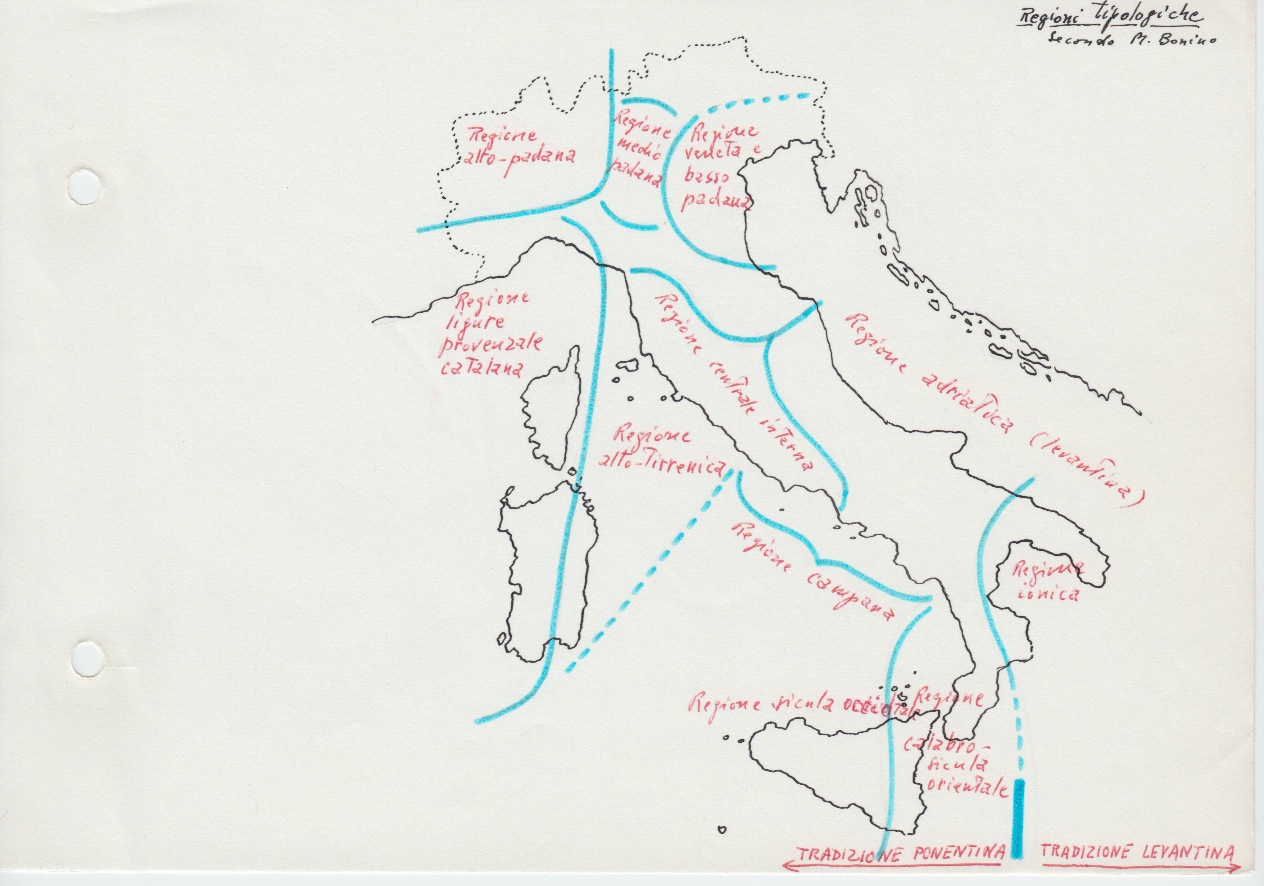 Regioni tipologiche
secondo M. Bonino
Regione
alto-padana
Regione
medio
padana
Regione
veneta e
basso
padana
Regione
ligure
provenzale
catalana
Regione centrale interna
Regione adriatica (levantina)
Regione
alto-tirrenica
Regione campana
Regione
ionica
Regione sicula occidentale
Regione
calabro-
sicula
orientale
TRADIZIONE PONENTINA
TRADIZIONE LEVANTINA